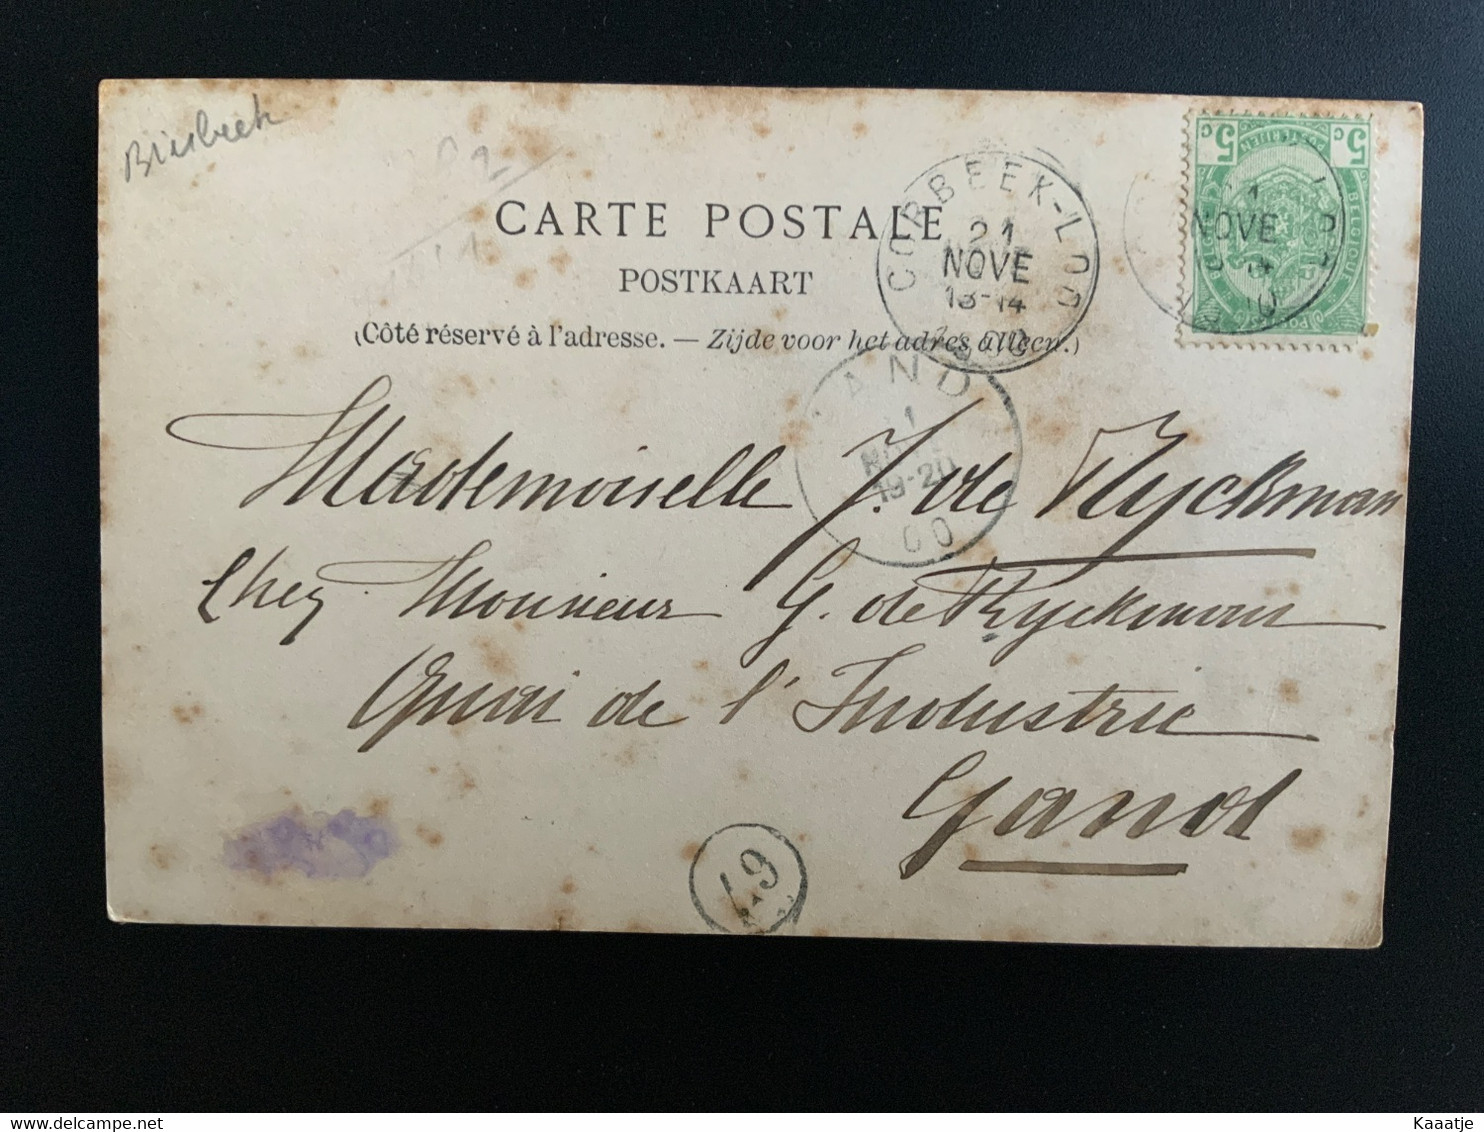 Bierbeek
CARTE POSTALE
POSTKAART
(Côté réservé à l'adresse. — Zijde voor het adres alleen.)
CORBEEK-LOO
21
NOVE
13-14
1900
5c 5c
POSTERIJEN
BELGIQUE
NOVE
GAND
19-20
00
Mademoiselle J. de Ryckman
Chez Monsieur G. de Ryckman
Quai de l'Industrie
Gand
delcampe.net
Kaaatje